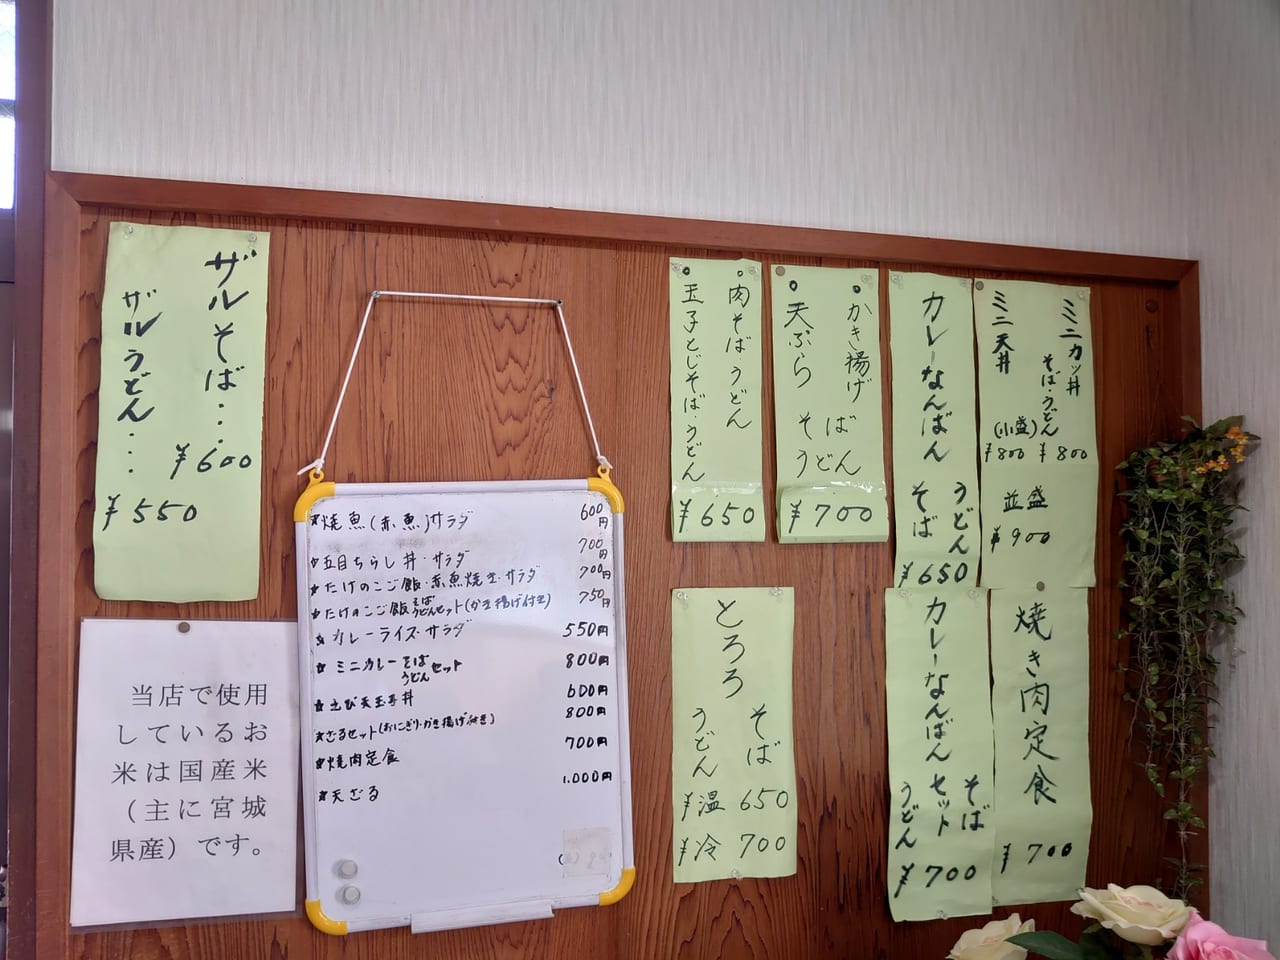 ザルそば・・・
¥600
ザルうどん・・・
¥550
当店で使用
しているお
米は国産米
（主に宮城
県産）です。
焼魚(赤魚)サラダ 600円
五目ちらし丼・サラダ 700円
たけのこご飯・赤魚焼き・サラダ 700円
たけのこご飯そばうどんセット(かき揚げ付き) 750円
カレーライス・サラダ 550円
ミニカレーそばうどんセット 800円
えび天玉子丼 600円
ざるセット(おにぎり・かき揚げ付き) 800円
焼肉定食 700円
天ざる 1,000円
肉そば・うどん
玉子とじそば・うどん
¥650
かき揚げ
天ぷら
そば
うどん
¥700
カレーなんばん
うどん
そば
¥650
ミニカツ丼
そば・うどん
ミニ天丼
(小盛)
¥800 ¥800
並盛
¥900
とろろ
そば
うどん
¥温 650
¥冷 700
カレーなんばん
セット
そば
うどん
¥700
焼き肉定食
¥700